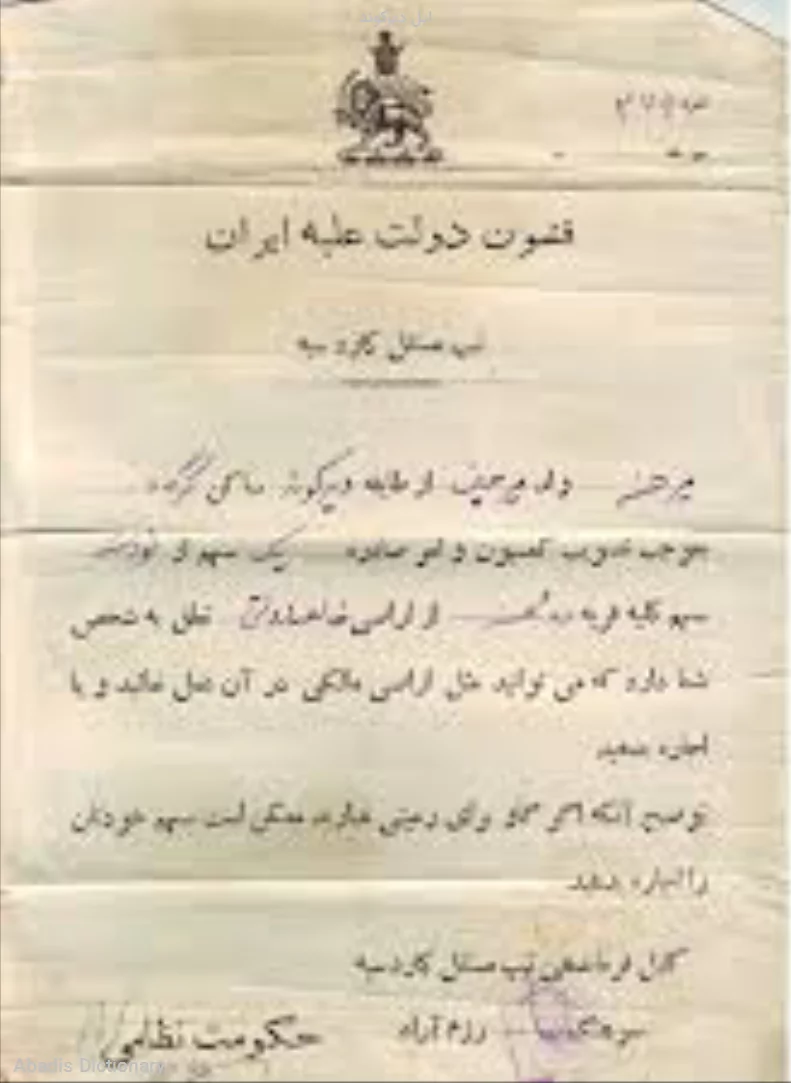 ایل دیرکوند
نمره
قشون دولت علیه ایران
تیپ مستقل گارد سپه
میر حسن ولد میر حسین از طایفه دیرکوند ساکن
بموجب تصویب کمیسیون و امر صادره یک سهم از
سهم کلیه قریه از اراضی تعلق به شخص
شما دارد که می توانید مثل اراضی مالکی در آن عمل نمائید و یا
اجاره بدهید
توضیح آنکه اگر گاو برای رعیتی ندارید ممکن است سهم خودتان
را اجاره بدهید
کفیل فرماندهی تیپ مستقل گارد سپه
سرهنگ رزم آراء
حکومت نظامی
Abadis Dictionary